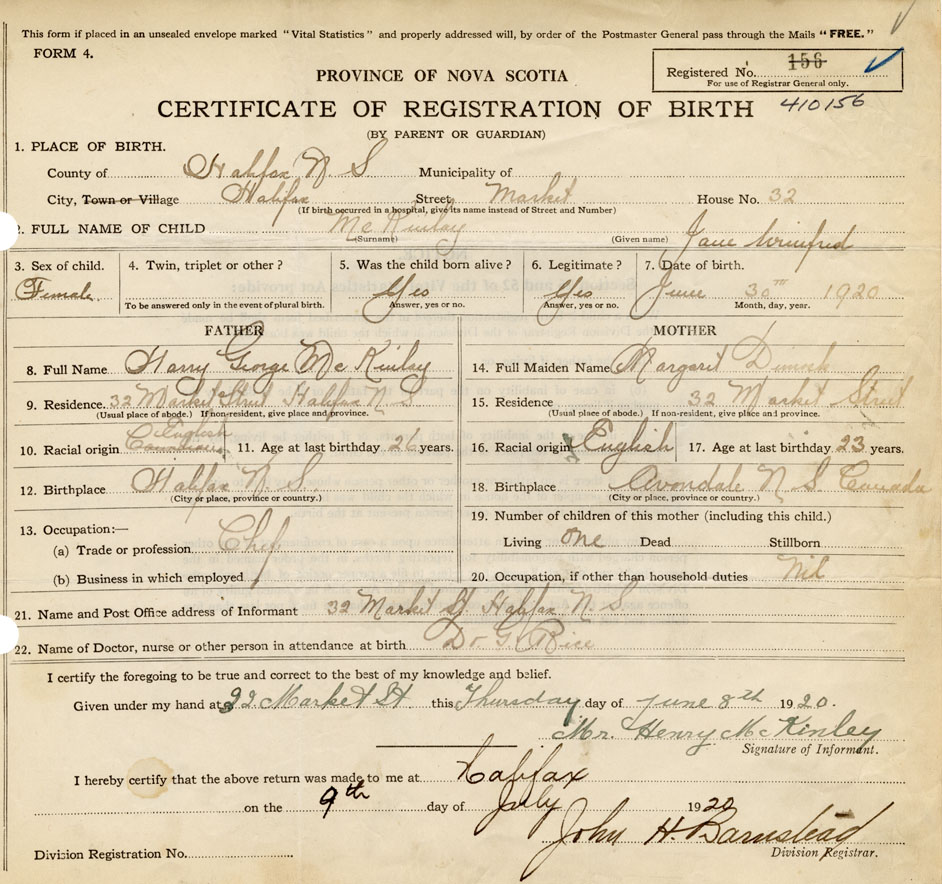 This form if placed in an unsealed envelope marked "Vital Statistics" and properly addressed will, by order of the Postmaster General pass through the Mails "FREE."
FORM 4.
Registered No. 156
For use of Registrar General only.
PROVINCE OF NOVA SCOTIA
CERTIFICATE OF REGISTRATION OF BIRTH 410156
(BY PARENT OR GUARDIAN)
1. PLACE OF BIRTH.
County of Halifax N. S Municipality of
City, Town or Village Halifax Street Market House No. 32
(If birth occurred in a hospital, give its name instead of Street and Number)
2. FULL NAME OF CHILD McKinley Jane Winifred
(Surname) (Given name)
3. Sex of child. 4. Twin, triplet or other? 5. Was the child born alive? 6. Legitimate? 7. Date of birth.
Female Yes Yes June 30TH 1920
To be answered only in the event of plural birth. Answer, yes or no. Answer, yes or no. Month, day, year.
FATHER
8. Full Name Harry George McKinlay
9. Residence. 32 Market Street Halifax N S
(Usual place of abode.) If non-resident, give place and province.
English
10. Racial origin Canadian 11. Age at last birthday 26 years.
12. Birthplace Halifax N. S
(City or place, province or country.)
13. Occupation:—
(a) Trade or profession Chef
(b) Business in which employed
MOTHER
14. Full Maiden Name Margaret Dimock
15. Residence 32 Market Street
(Usual place of abode.) If non-resident, give place and province.
16. Racial origin English 17. Age at last birthday 23 years.
18. Birthplace Avondale N S Canada
(City or place, province or country.)
19. Number of children of this mother (including this child.)
Living One Dead Stillborn
20. Occupation, if other than household duties Nil
21. Name and Post Office address of Informant 32 Market St. Halifax N. S
22. Name of Doctor, nurse or other person in attendance at birth Dr G. Rice
I certify the foregoing to be true and correct to the best of my knowledge and belief.
Given under my hand at 32 Market St this Thursday day of June 8th 1920.
Mr. Henry McKinley
Signature of Informant.
I hereby certify that the above return was made to me at Halifax
on the 9th day of July 1920
John H. Barnstead
Division Registrar.
Division Registration No.